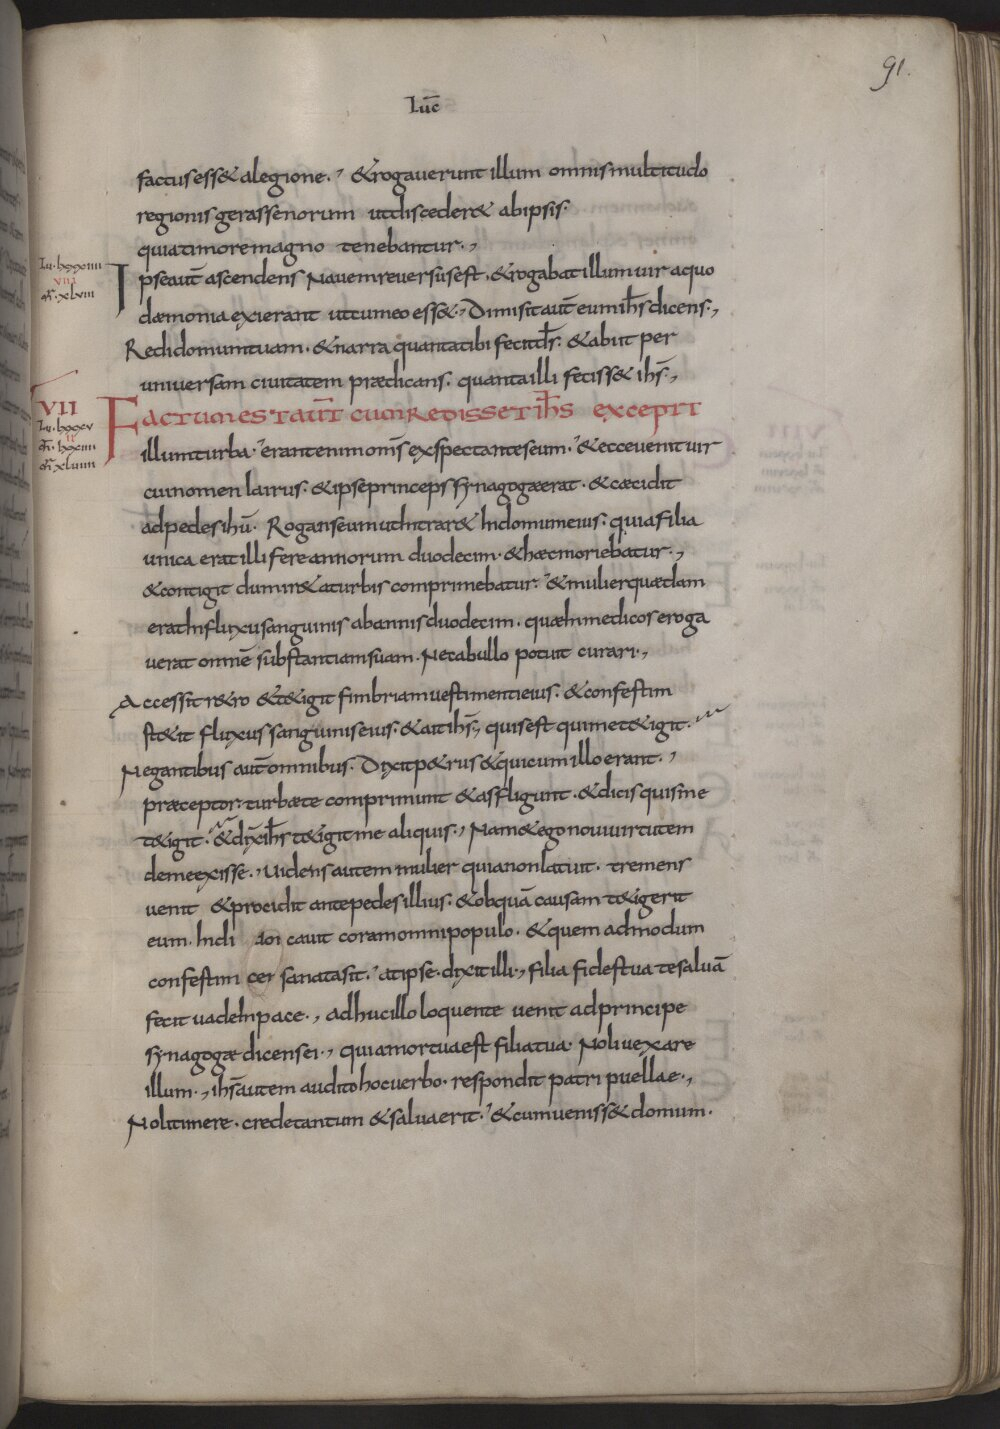 91.
Luc̄
factus ess& a legione. & rogaverunt illum omnis multitudo
regionis gerassenorum ut disceder& ab ipsis.
quia timore magno tenebantur.,
Ipse aut̄ ascendens navem reversus est. & rogabat illum vir a quo
dæmonia exierant ut cum eo ess&., Dimisit aut̄ eum ih̄s dicens.,
Redi domum tuam. & narra quanta tibi fecit d̄s. & abiit per
universam civitatem prædicans. quanta illi feciss& ih̄s.,
VII
Factum est aut̄ cum Redisset ih̄s excepit
illum turba. erant enim om̄s exspectantes eum. & ecce venit vir
cui nomen lairus. & ipse princeps synagogæ erat. & cæcidit
ad pedes ihū. Rogans eum ut intrar& in domum eius. quia filia
unica erat illi fere annorum duodecim. & hæc moriebatur.,
& contigit dum ir& a turbis comprimebatur. & mulier quædam
erat in fluxu sanguinis ab annis duodecim. quæ in medicos eroga
verat omnē substantiam suam. Nec ab ullo potuit curari.,
Accessit r&ro & t&igit fimbriam vestimenti eius. & confestim
st&it fluxus sanguinis eius. & ait ih̄s., quis est qui me t&igit.
Negantibus aut̄ omnibus. Dixit p&rus & qui cum illo erant.,
præceptor. turbæ te comprimunt & affligunt. & dicis quis me
t&igit. & dix̄ ih̄s t&igit me aliquis., Nam & ego novi virtutem
de me exisse., Videns autem mulier quia non latuit. tremens
venit & procidit ante pedes illius. & ob quā causam t&igerit
eum. Indi cavit coram omni populo. & quem admodum
confestim sanata sit. at ipse. dixit illi., filia fides tua te salvā
fecit vade in pace., adhuc illo loquente venit ad principe
synagogæ dicens ei., quia mortua est filia tua. Noli vexare
illum., ih̄s autem audito hoc verbo. respondit patri puellae.,
Noli timere. crede tantum & salva erit. & cum veniss& domum.